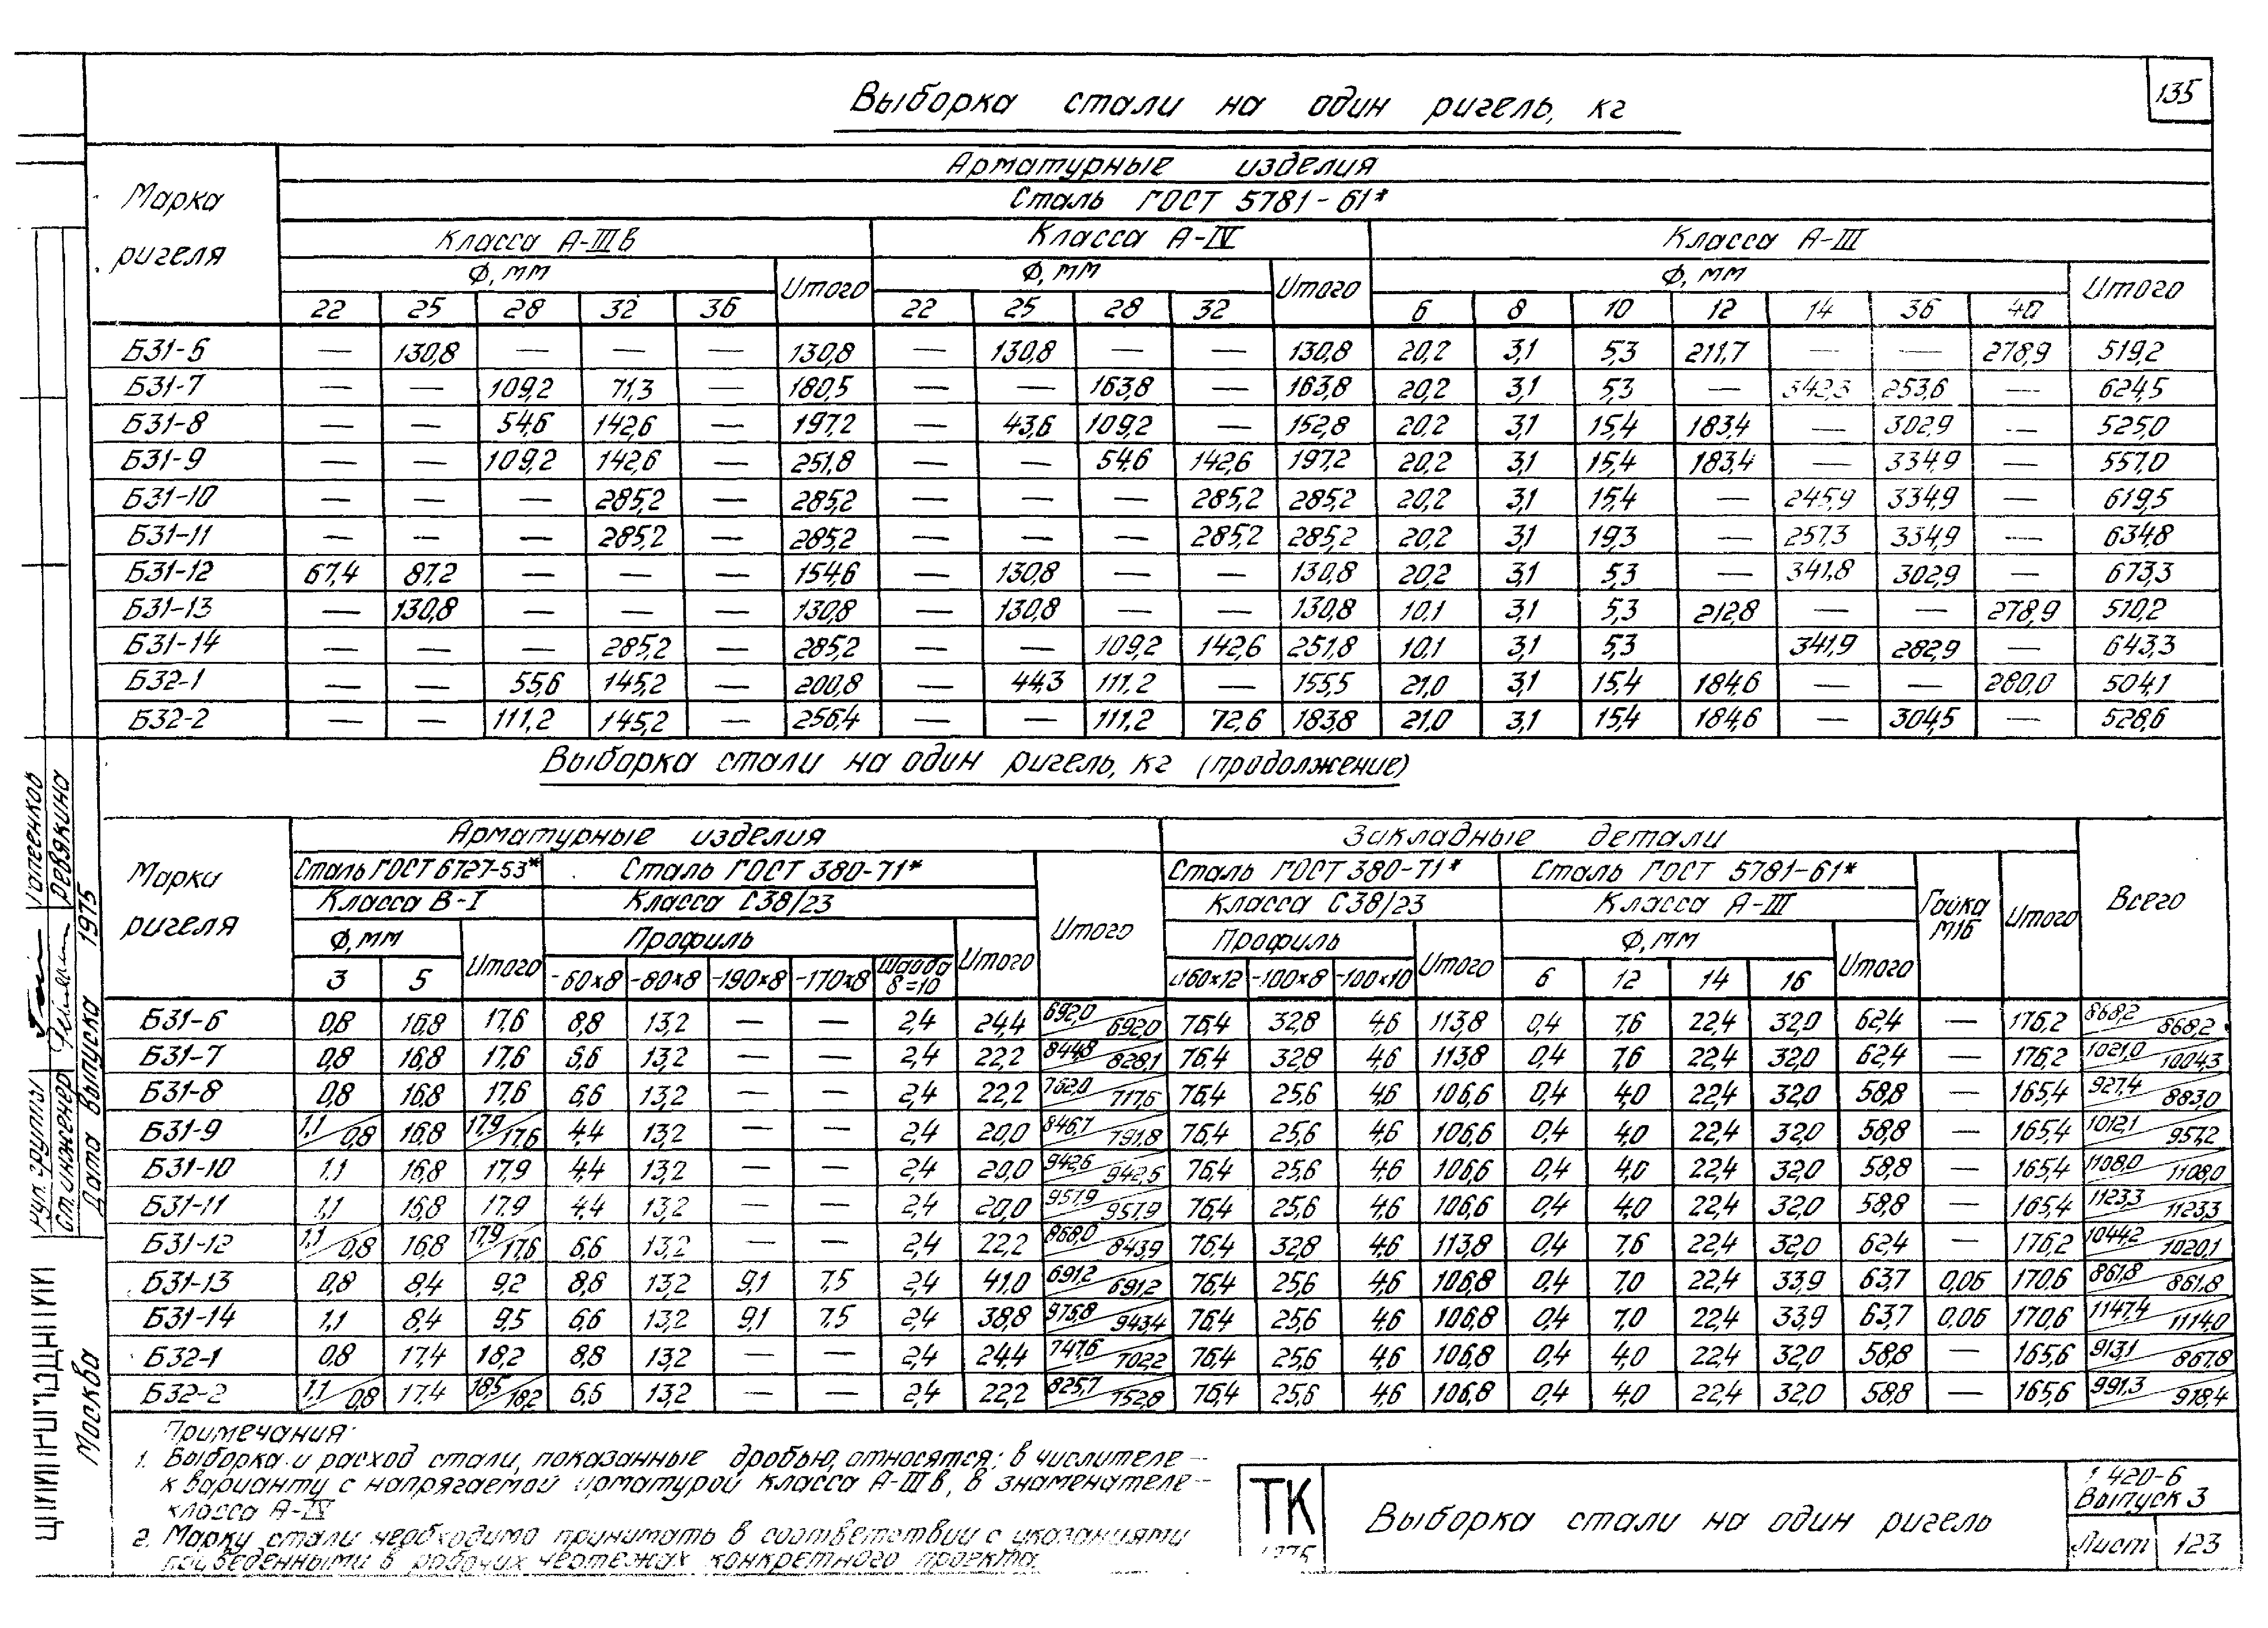 135
Выборка стали на один ригель, кг
Марка ригеля
Арматурные изделия
Сталь ГОСТ 5781-61*
Класса А-IIIв Класса А-IV Класса А-III
Ф, мм Итого Ф, мм Итого Ф, мм Итого
22 25 28 32 36 22 25 28 32 6 8 10 12 14 36 40
Б31-6 — 130,8 — — — 130,8 — 130,8 — — 130,8 20,2 3,1 5,3 211,7 — — 278,9 519,2
Б31-7 — — 109,2 71,3 — 180,5 — — 163,8 — 163,8 20,2 3,1 5,3 — 342,3 253,6 — 624,5
Б31-8 — — 54,6 142,6 — 197,2 — 43,6 109,2 — 152,8 20,2 3,1 15,4 183,4 — 302,9 — 525,0
Б31-9 — — 109,2 142,6 — 251,8 — — 54,6 142,6 197,2 20,2 3,1 15,4 183,4 — 334,9 — 557,0
Б31-10 — — — 285,2 — 285,2 — — — 285,2 285,2 20,2 3,1 15,4 — 245,9 334,9 — 619,5
Б31-11 — — — 285,2 — 285,2 — — — 285,2 285,2 20,2 3,1 19,3 — 257,3 334,9 — 634,8
Б31-12 67,4 87,2 — — — 154,6 — 130,8 — — 130,8 20,2 3,1 5,3 — 341,8 302,9 — 673,3
Б31-13 — 130,8 — — — 130,8 — 130,8 — — 130,8 10,1 3,1 5,3 212,8 — — 278,9 510,2
Б31-14 — — — 285,2 — 285,2 — — 109,2 142,6 251,8 10,1 3,1 5,3 341,9 282,9 — 643,3
Б32-1 — — 55,6 145,2 — 200,8 — 44,3 111,2 — 155,5 21,0 3,1 15,4 184,6 — — 280,0 504,1
Б32-2 — — 111,2 145,2 — 256,4 — — 111,2 72,6 183,8 21,0 3,1 15,4 184,6 — 304,5 — 528,6
Выборка стали на один ригель, кг (продолжение)
Марка ригеля
Арматурные изделия Закладные детали Всего
Сталь ГОСТ 6727-53* Сталь ГОСТ 380-71* Итого Сталь ГОСТ 380-71* Сталь ГОСТ 5781-61* Гайка М16 Итого
Класса В-I Класса С38/23 Класса С38/23 Класса А-III
Ф, мм Итого Профиль Итого Профиль Итого Ф, мм Итого
3 5 -60×8 -80×8 -190×8 -170×8 Шайба δ=10 ∟160×12 -100×8 -100×10 6 12 14 16
Б31-6 0,8 16,8 17,6 8,8 13,2 — — 2,4 24,4 692,0/692,0 76,4 32,8 4,6 113,8 0,4 7,6 22,4 32,0 62,4 — 176,2 868,2/868,2
Б31-7 0,8 16,8 17,6 6,6 13,2 — — 2,4 22,2 844,8/828,1 76,4 32,8 4,6 113,8 0,4 7,6 22,4 32,0 62,4 — 176,2 1021,0/1004,3
Б31-8 0,8 16,8 17,6 6,6 13,2 — — 2,4 22,2 762,0/717,6 76,4 25,6 4,6 106,6 0,4 4,0 22,4 32,0 58,8 — 165,4 927,4/883,0
Б31-9 1,1/0,8 16,8 17,9/17,6 4,4 13,2 — — 2,4 20,0 846,7/791,8 76,4 25,6 4,6 106,6 0,4 4,0 22,4 32,0 58,8 — 165,4 1012,1/957,2
Б31-10 1,1 16,8 17,9 4,4 13,2 — — 2,4 20,0 942,6/942,6 76,4 25,6 4,6 106,6 0,4 4,0 22,4 32,0 58,8 — 165,4 1108,0/1108,0
Б31-11 1,1 16,8 17,9 4,4 13,2 — — 2,4 20,0 957,9/957,9 76,4 25,6 4,6 106,6 0,4 4,0 22,4 32,0 58,8 — 165,4 1123,3/1123,3
Б31-12 1,1/0,8 16,8 17,9/17,6 6,6 13,2 — — 2,4 22,2 868,0/843,9 76,4 32,8 4,6 113,8 0,4 7,6 22,4 32,0 62,4 — 176,2 1044,2/1020,1
Б31-13 0,8 8,4 9,2 8,8 13,2 9,1 7,5 2,4 41,0 691,2/691,2 76,4 25,6 4,6 106,8 0,4 7,0 22,4 33,9 63,7 0,06 170,6 861,8/861,8
Б31-14 1,1 8,4 9,5 6,6 13,2 9,1 7,5 2,4 38,8 976,8/943,4 76,4 25,6 4,6 106,8 0,4 7,0 22,4 33,9 63,7 0,06 170,6 1147,4/1114,0
Б32-1 0,8 17,4 18,2 8,8 13,2 — — 2,4 24,4 747,6/702,2 76,4 25,6 4,6 106,8 0,4 4,0 22,4 32,0 58,8 — 165,6 913,1/867,8
Б32-2 1,1/0,8 17,4 18,5/18,2 6,6 13,2 — — 2,4 22,2 825,7/752,8 76,4 25,6 4,6 106,8 0,4 4,0 22,4 32,0 58,8 — 165,6 991,3/918,4
Примечания:
1. Выборка и расход стали, показанные дробью, относятся: в числителе —
к варианту с напрягаемой арматурой класса А-IIIв, в знаменателе —
класса А-IV
2. Марку стали необходимо принимать в соответствии с указаниями
приведенными в рабочих чертежах конкретного проекта.
ТК
Выборка стали на один ригель
1.420-6
Выпуск 3
Лист 123
Рук. группы
Ст. инженер Ревякина
Дата выпуска 1975
Москва